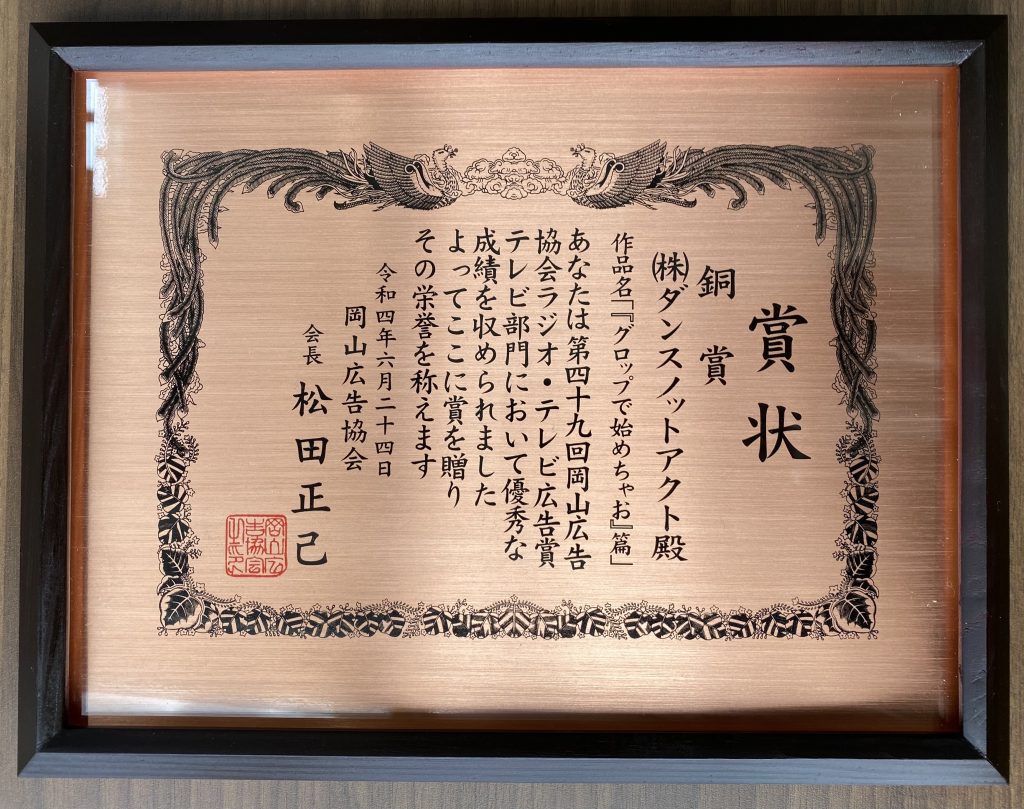 賞状
銅賞
㈱ダンスノットアクト殿
作品名「『グロップで始めちゃお』篇」
あなたは第四十九回岡山広告
協会ラジオ・テレビ広告賞
テレビ部門において優秀な
成績を収められました
よってここに賞を贈り
その栄誉を称えます
令和四年六月二十四日
岡山広告協会
会長 松田正己